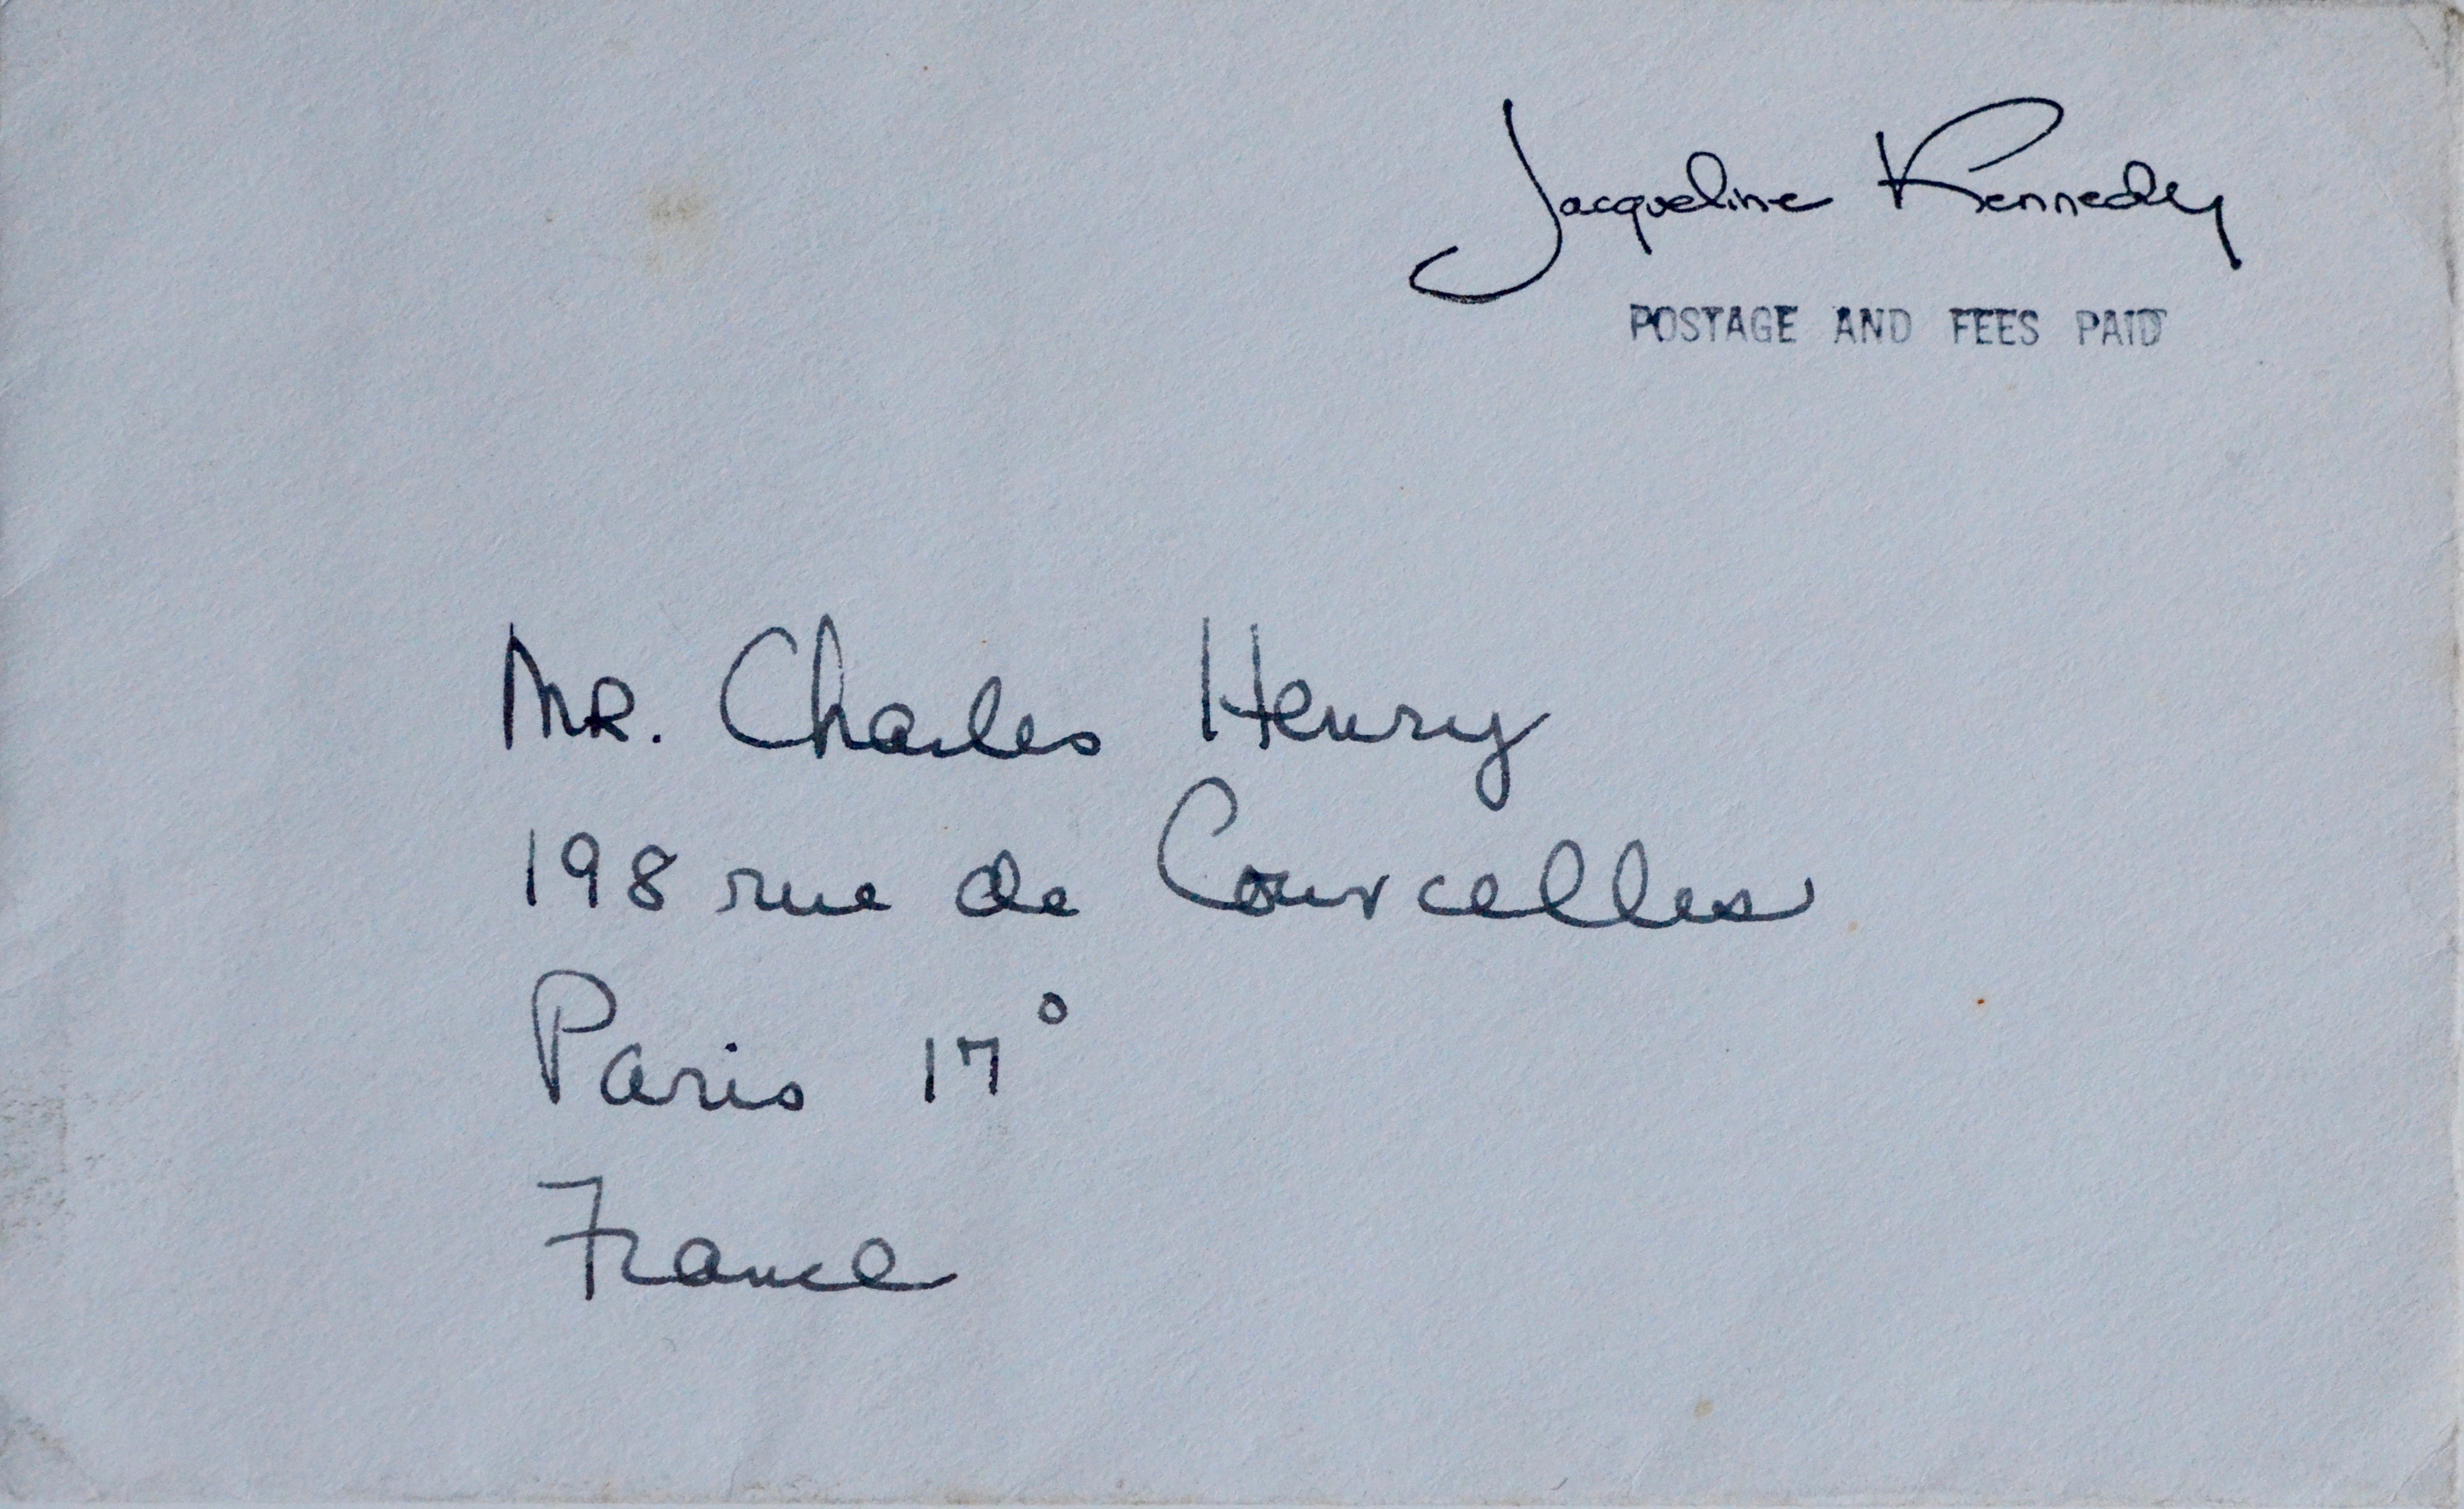 Jacqueline Kennedy
POSTAGE AND FEES PAID
MR. Charles Henry
198 rue de Courcelles
Paris 17°
France